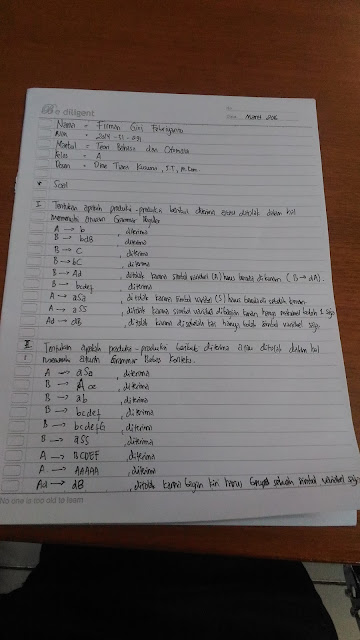 Be diligent
No.
Date. Maret 2016
Nama = Firman Giri
NIM = 2014-31-231
Matkul = Teori Bahasa dan Otomata
Kelas = A
Dosen = Dine Tiara Kusuma, ST, M.Kom.
* Soal
I. Tentukan apakah produksi-produksi berikut diterima atau ditolak dalam hal
Memenuhi Aturan Grammar Reguler
A → b , diterima
B → bdB , diterima
B → C , diterima
B → bC , diterima
B → Ad , ditolak karena simbol variabel (A) harus berada dikanan (B → dA).
B → bcdef , diterima
A → aSa , ditolak karena simbol variabel (S) harus berada di sebelah kanan.
A → aSS , ditolak karena simbol variabel dibagian kanan hanya maksimal boleh 1 saja
Ad → dB , ditolak karena disebelah kiri hanya boleh simbol variabel saja.
II. Tentukan apakah produksi-produksi berikut diterima atau ditolak dalam hal
memenuhi aturan Grammar Bebas Konteks.
A → aSa , diterima
B → Ace , diterima
B → ab , diterima
B → bcdef , diterima
B → bcdefG , diterima
B → aSS , diterima
A → BCDEF , diterima
A → AAAAA , diterima
Ad → dB , ditolak karena bagian kiri harus sebuah simbol variabel saja
No one is too old to learn